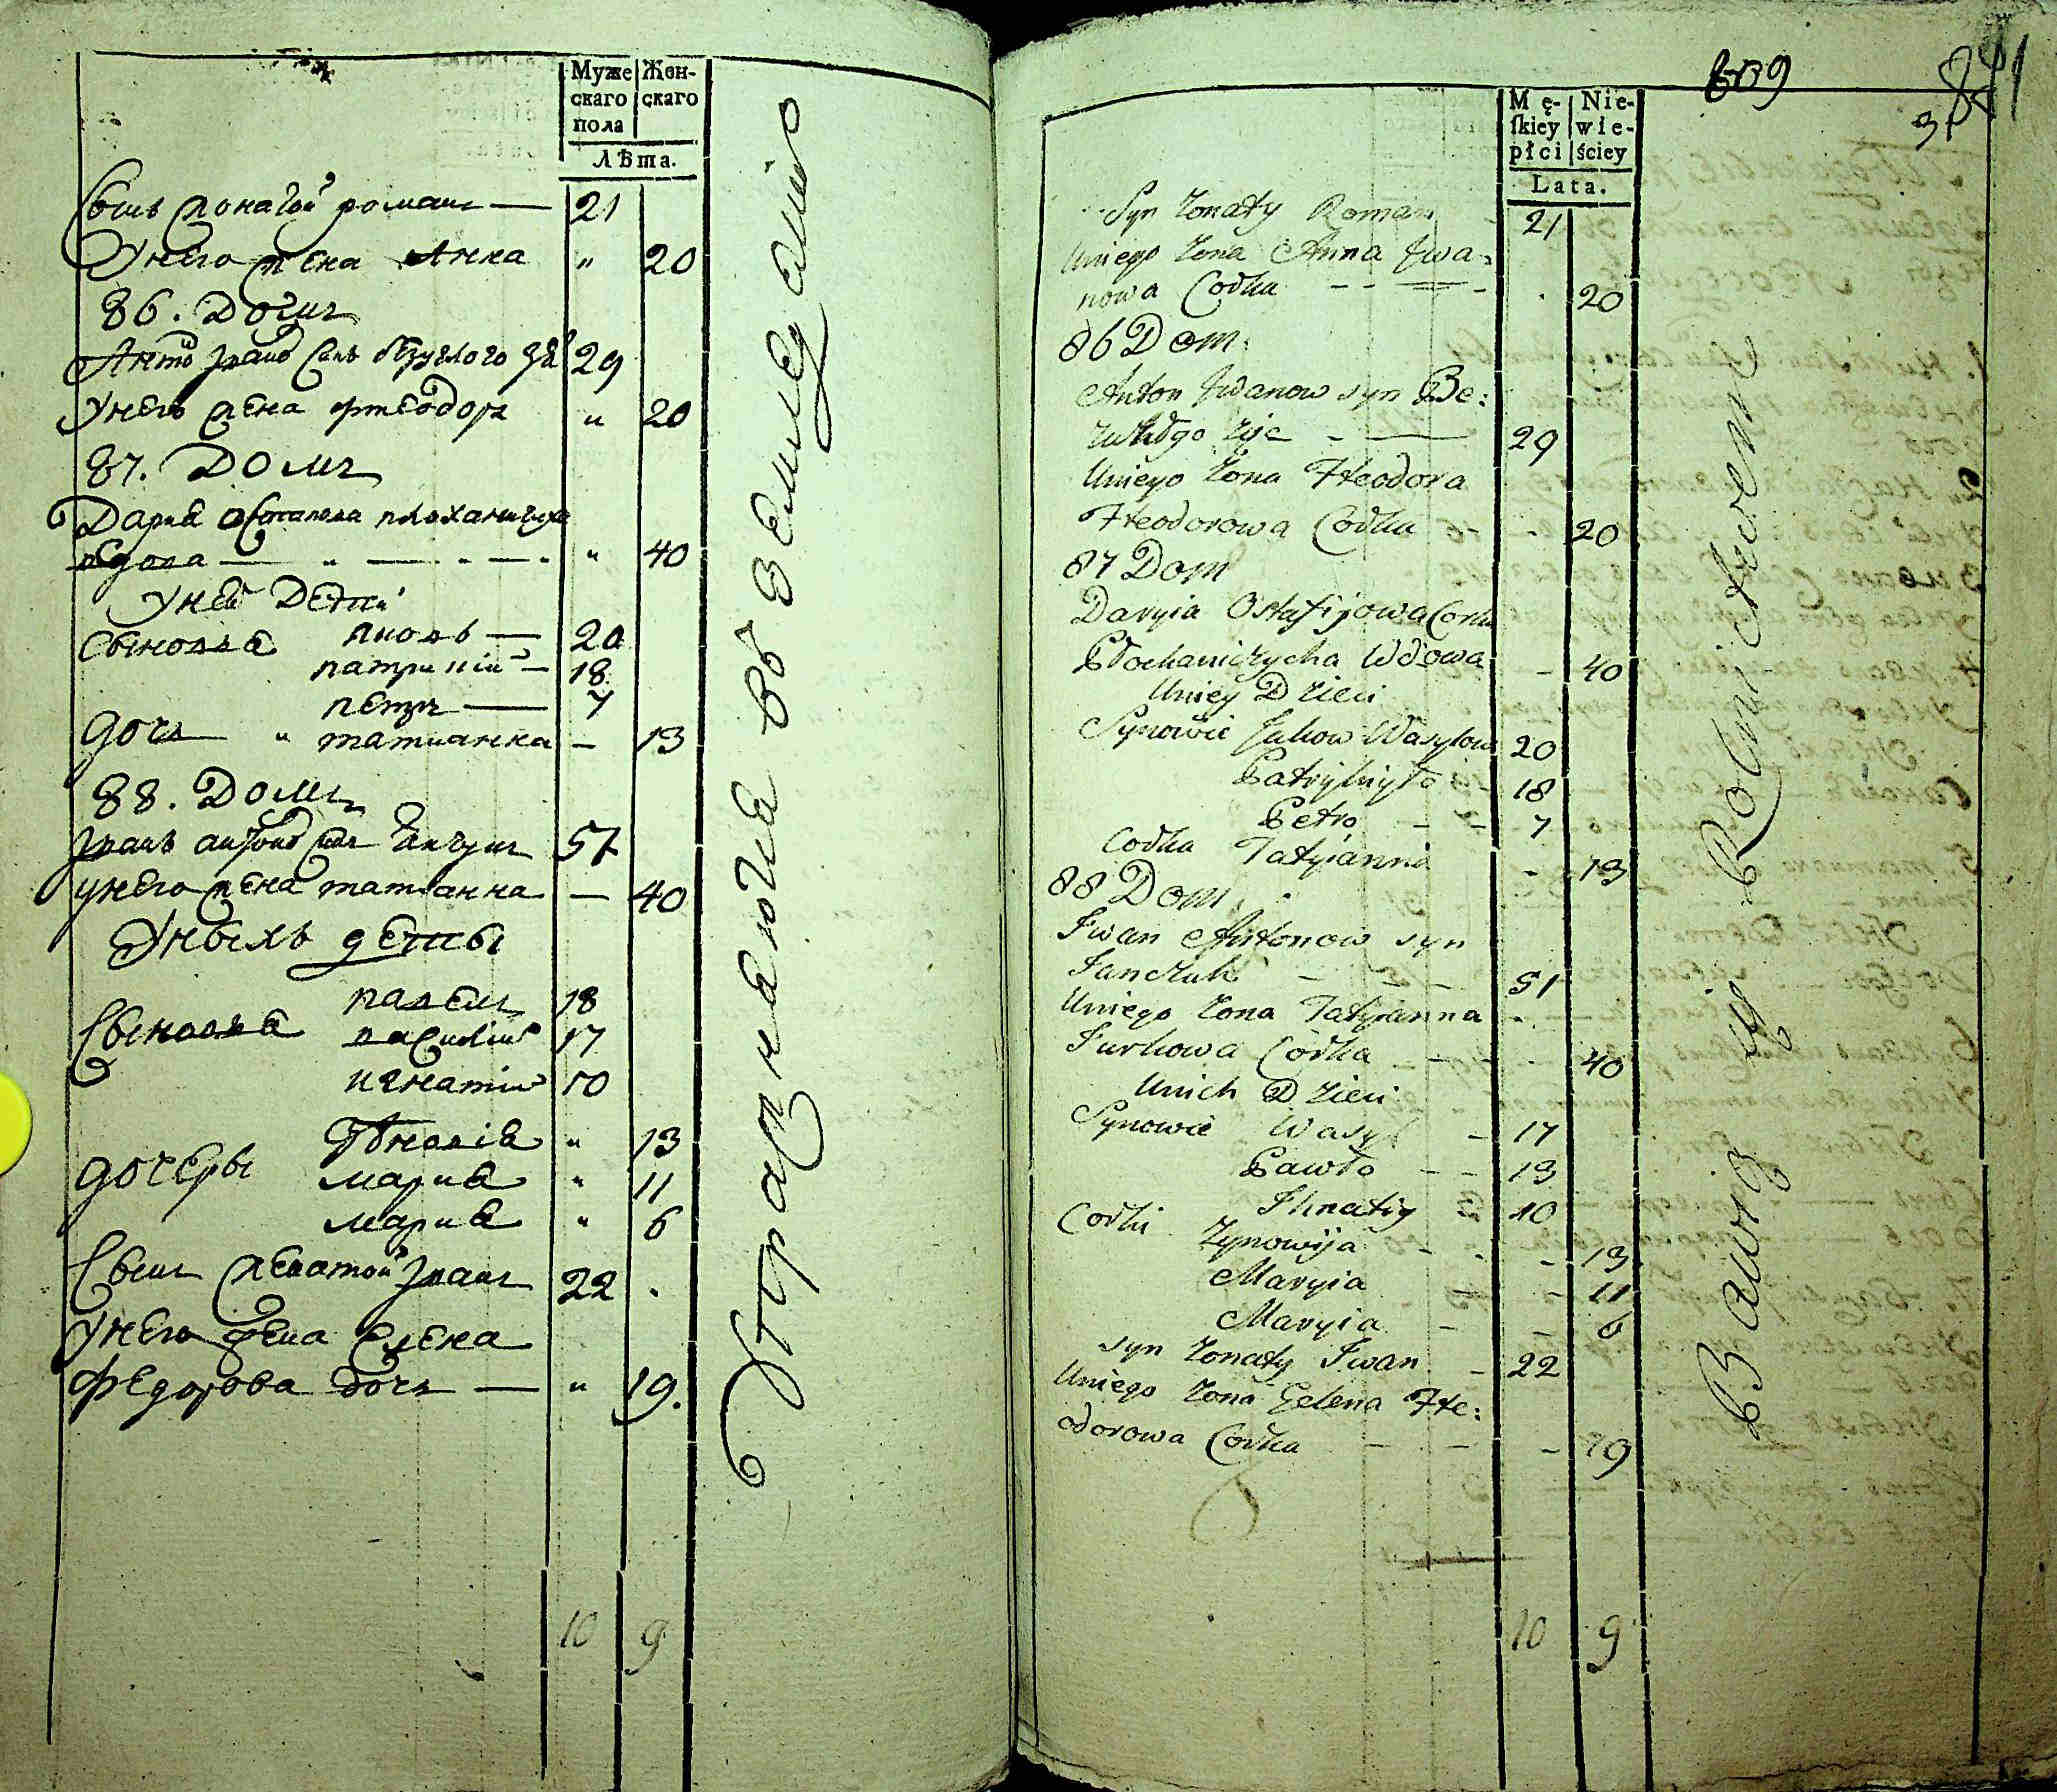 Муже
скаго
пола
Жен-
скаго
Лѣта.
Сынъ жонатой романъ — 21
Унего жена Анна " 20
86. Домъ
Антон Іванов Сынъ 29
Унего жена фтеодора " 20
87. Домъ
Дария Остапова
вдова — " — " — " 40
Уней Дети
Сыновья яковъ — 20
патрикій — 18
петръ — 7
дочь " татианна — 13
88. Домъ
Іванъ антонов Сынъ Янчукъ 57
унего жена татианна — 40
Уныхъ дети
Сыновья павелъ 18
василій 17
игнатій 10
дочеры Зѣновія " 13
мария " 11
мария " 6
Сынъ женатой Іванъ 22 .
Унего жена Елена
Федорова дочь — " 19.
10 9
Упражнаются въ земледелию
609
841
31
Mę-
ſkiey
płci
Nie-
wie-
ściey
Lata.
Syn żonaty Roman 21
Uniego żona Anna Iwa=
nowa Codka - - - 20
86 Dom
Anton Iwanow syn Be:
żyie - — 29
Uniego żona Fteodora
Fteodorowa Codka - 20
87 Dom
Daryia Ostafijowa Corka
Płochaniczycha Wdowa - 40
Uniey Dzieci
Synowie Jakow Wasylow 20
Patrykiy 18
Petro - - 7
Codka Tatyianna - 13
88 Dom
Iwan Antonow syn
Janczuk - - - 51
Uniego żona Tatyianna -
Jurkowa Codka - - - 40
Unich Dzieci
Synowie Wasyl - 17
Pawło - - 13
Ihnatiy 10
Codki Zynowija - - - 13
Maryia - - 11
Maryia - - 6
syn żonaty Iwan - 22
Uniego żona Helena Fte:
odorowa Codka - - - 19
10 9
Bawią się Rolnictwem